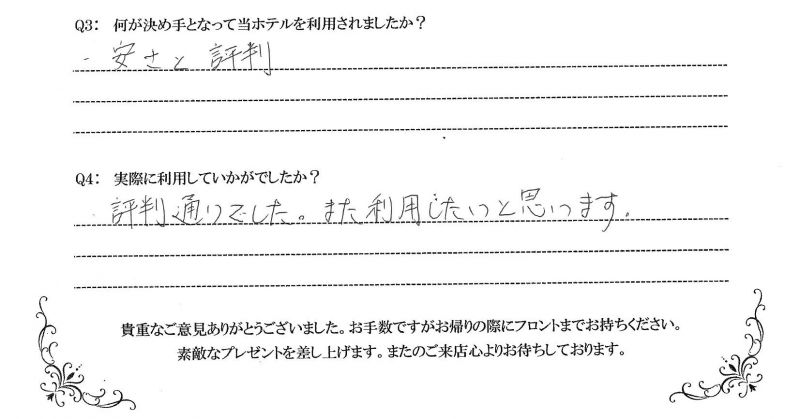 Q3: 何が決め手となって当ホテルを利用されましたか？
・安さと評判
Q4: 実際に利用していかがでしたか？
・評判通りでした。また利用したいと思います。
貴重なご意見ありがとうございました。お手数ですがお帰りの際にフロントまでお持ちください。
素敵なプレゼントを差し上げます。またのご来店心よりお待ちしております。